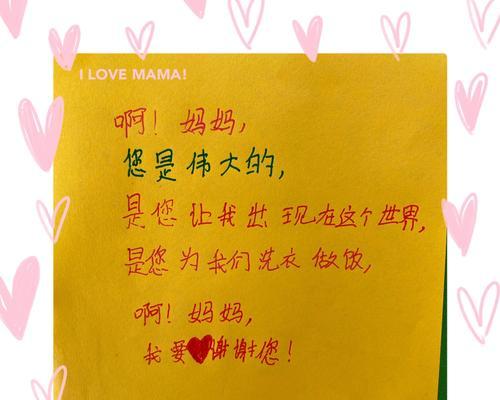 I LOVE MAMA!
啊！妈妈，
您是伟大的，
是您让我出现在这个世界，
是您为我们洗衣做饭，
啊！妈妈，
我要谢谢您！